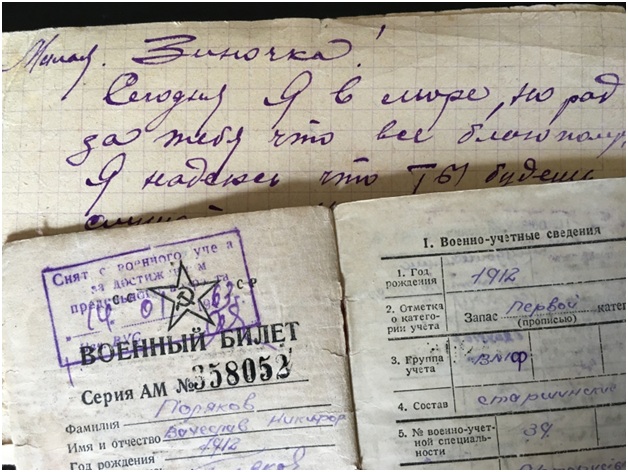 Милая. Зиночка!
Сегодня Я в море, но рад
за тебя что все благопол
Я надеюсь что ТЫ будешь
Снят с военного уче а
за достиж м
предельного та
14 01 1963
СС СР
ВОЕННЫЙ БИЛЕТ
Серия АМ № 358052
Фамилия Поляков
Имя и отчество Вячеслав Никифор
Год рождения 1912
I. Военно-учетные сведения
1. Год
рождения 1912
2. Отметка
о катего-
рии учёта
Запас первой кате
(прописью)
3. Группа
учета ВМФ
4. Состав старшинский
5. № военно-учет-
ной специаль-
ности 34